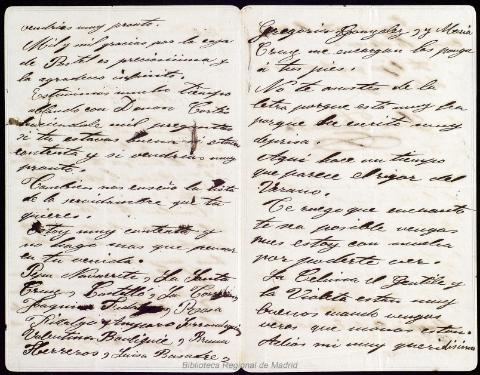 vendrías muy pronto.
Mil y mil gracias por la caja
de Ortiz es preciosísima y
la agradezco infinito.
Estuvimos mucho tiempo
hablando con Ramon Cortí
haciendole mil preguntas
si tu estavas buena si estavas
contenta y si vendrias muy
pronto.
Tambien nos enseño la lista
de la servidumbre que tu
quieres.
Estoy muy contenta y
no hago mas que pensar
en tu venida.
Pepa Navarrete, La Santa
Cruz, Castillo, La
Joaquina Rosa
Hidalgo y Amparo
Valentina Bruna
Herreros, Luisa Basadre,
Gregoria Gonzalez, y Maria
Cruz me encargan las ponga
á tus pies.
No te asustes de la
letra porque esta muy fea
porque he escrito muy
deprisa.
Aqui hace un tiempo
que parece el rigor del
Verano.
Te ruego que en cuanto
te sea posible vengas
pues estoy con mucha
por poderte ver.
La Celima el Gentil y
la Violeta estan muy
buenos cuando vengas
veras que monos estan.
Adios mi muy queridisima
Biblioteca Regional de Madrid